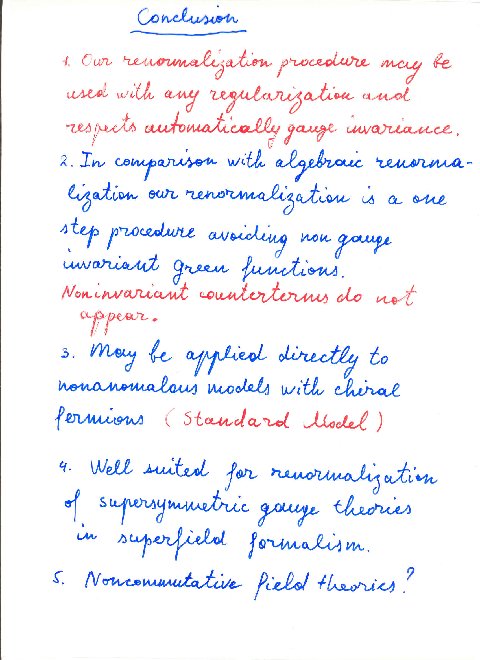 Conclusion
1. Our renormalization procedure may be
used with any regularization and
respects automatically gauge invariance.
2. In comparison with algebraic renorma-
lization our renormalization is a one
step procedure avoiding non gauge
invariant Green functions.
Noninvariant counterterms do not
appear.
3. May be applied directly to
nonanomalous models with chiral
fermions (Standard Model)
4. Well suited for renormalization
of supersymmetric gauge theories
in superfield formalism.
5. Noncommutative field theories?